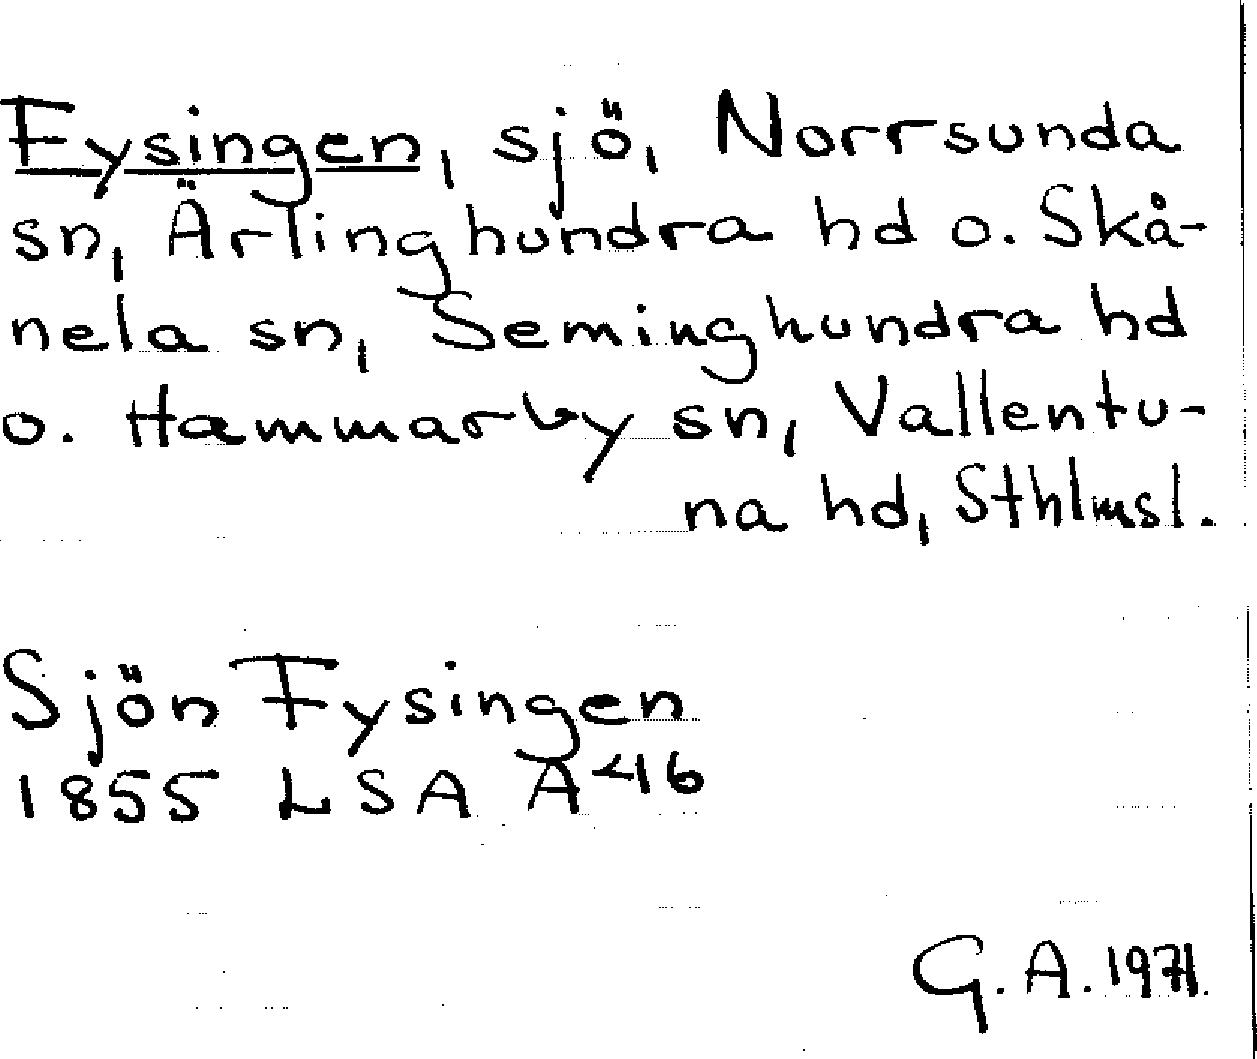 Fysingen, sjö, Norrsunda
sn, Ärlinghundra hd o. Skå-
nela sn, Seminghundra hd
o. Hammarby sn, Vallentu-
na hd, Sthlmsl.
Sjön Fysingen
1855 LSA A 46
G.A. 1971.